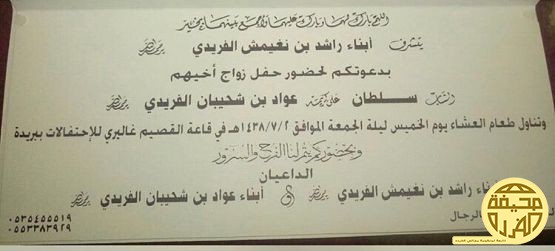 اللهم بارك لهما وبارك عليهما واجمع بينهما بخير
يتشرف أبناء راشد بن نغيمش الفريدي
بدعوتكم لحضور حفل زواج أخيهم
الشاب سلطان على كريمة عواد بن شحيبان الفريدي
وتناول طعام العشاء يوم الخميس ليلة الجمعة الموافق ١٤٣٨/٧/٢هـ في قاعة القصيم غاليري للإحتفالات ببريدة
وبحضوركم يتم لنا الفرح والسرور
الداعيان
أبناء راشد بن نغيمش الفريدي و أبناء عواد بن شحيبان الفريدي
٠٥٣٥٤٥٥٥١٩
٠٥٥٣٣٨٣٩٢٩
صحيفة الفردة